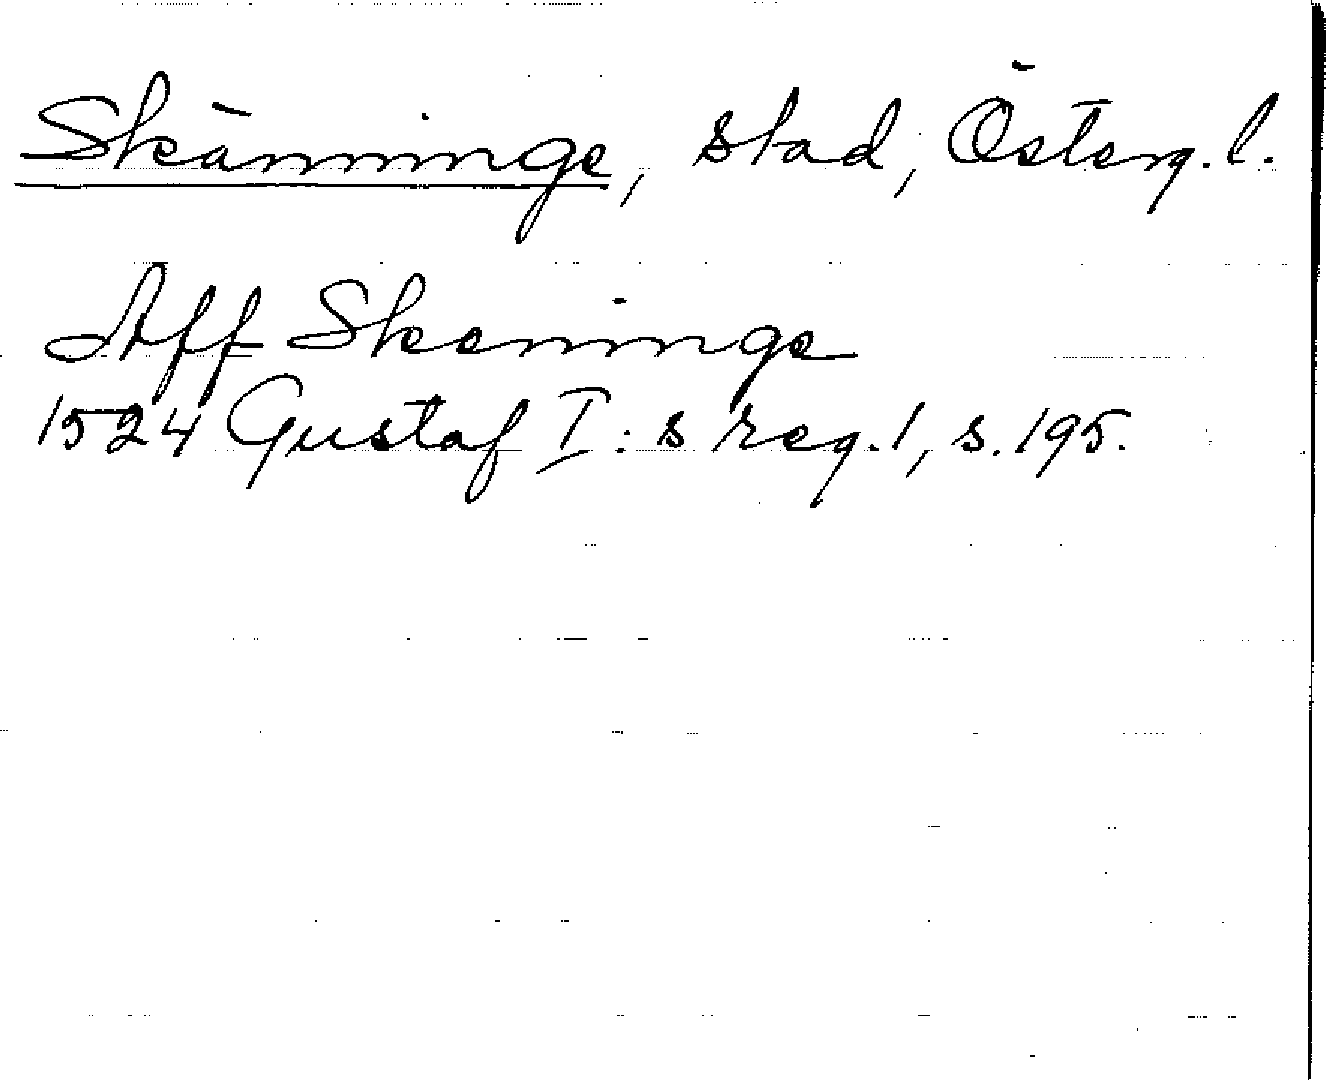 Skänninge, stad, Österg. l.
Aff Skeninge
1524 Gustaf I:s reg. 1, s. 195.